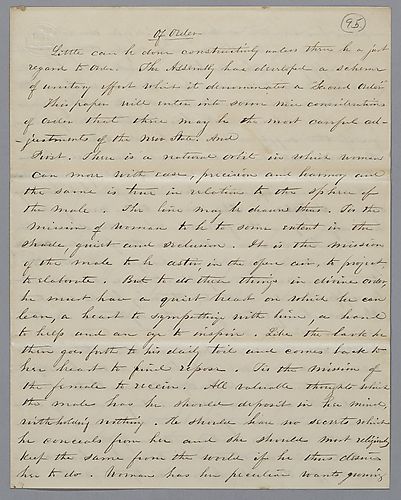 Of Order
95
Little can be done constructively unless there be a just
regard to Order. The Assembly has developed a scheme
of unitary effort what it denominates a "Sacred Order"
This paper will enter into some nice considerations
of Order that there may be the most careful ad-
justments of the New State. And
First. There is a natural orbit in which woman
can move with ease, precision and harmony and
the same is true in relation to the sphere of
the male. The line may be drawn thus. Tis the
mission of woman to be to some extent in the
shade, quiet and seclusion. It is the mission
of the male to be astir, in the open air, to project,
to elaborate. But to do these things in divine order,
he must have a quiet breast on which he can
lean, a heart to sympathize with him, a hand
to help and an eye to inspire. Like the lark he
then goes forth to his daily toil and comes back to
her heart to find repose. Tis the mission of
the female to receive. All valuable thoughts which
the male has he should deposit in her mind,
withholding nothing. He should have no secrets which
he conceals from her and she should most religiously
keep the same from the world if he thus desires
her to do. Woman has her peculiar wants growing